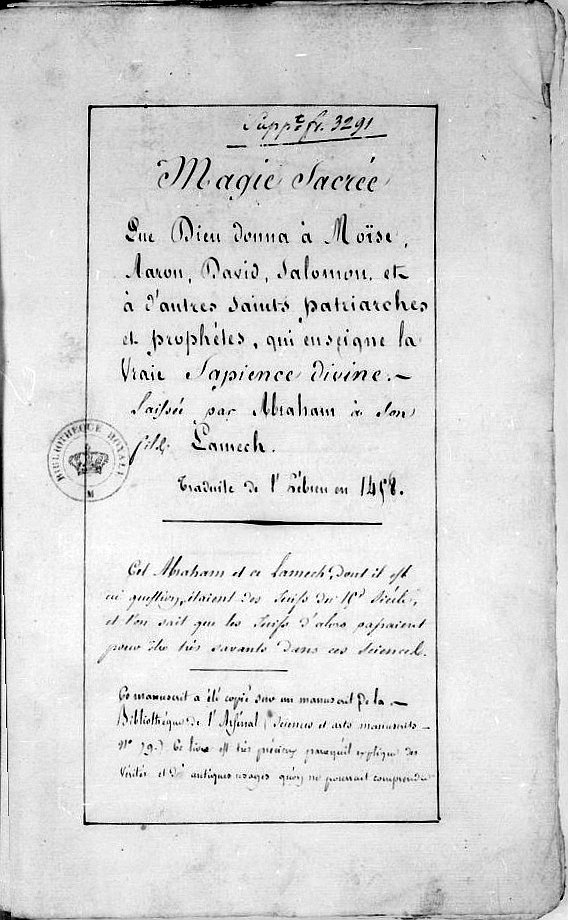 Supp.t fr. 3291
Magie Sacrée
Que Dieu donna à Moïse,
Aaron, David, Salomon, et
à d'autres saints patriarches
et prophètes, qui enseigne la
Vraie Sapience divine. —
Laissée par Abraham à Son
fils Lamech.
BIBLIOTHEQUE ROYALE
M
Traduite de l'Hébreu en 1458.
Cet Abraham et ce Lamech, dont il est
ici question, étaient des Juifs du 15e Siècle,
et l'on sait que les Juifs d'alors passaient
pour être très savants dans ces Sciences.
Ce manuscrit a été copié sur un manuscrit de la —
Bibliothèque de l'Arsénal (Sciences et arts manuscrits —
No 79.) Ce livre est très précieux parcequ'il explique des
Vérités et des antiques usages qu'on ne pourrait comprendre